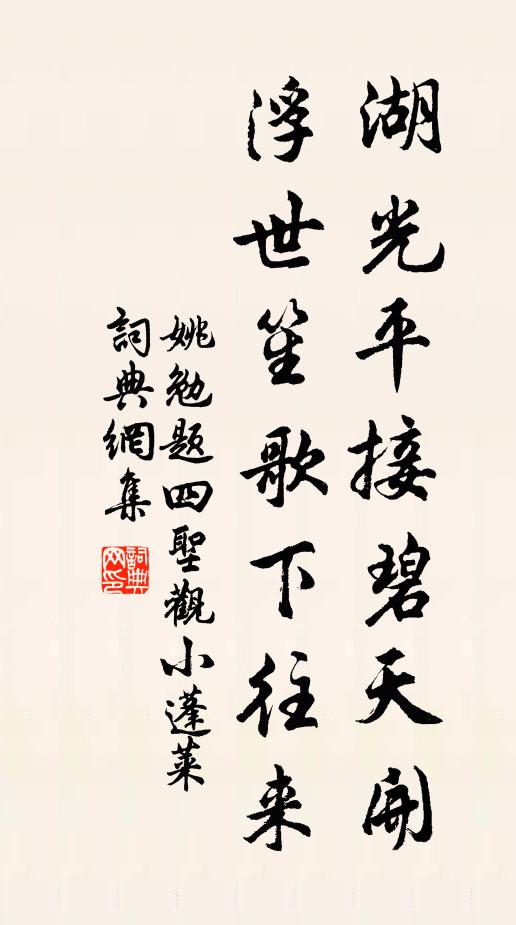 湖光平接碧天開
浮世笙歌下往来
姚勉题四聖觀小蓬莱
詞典網集
詞典網印